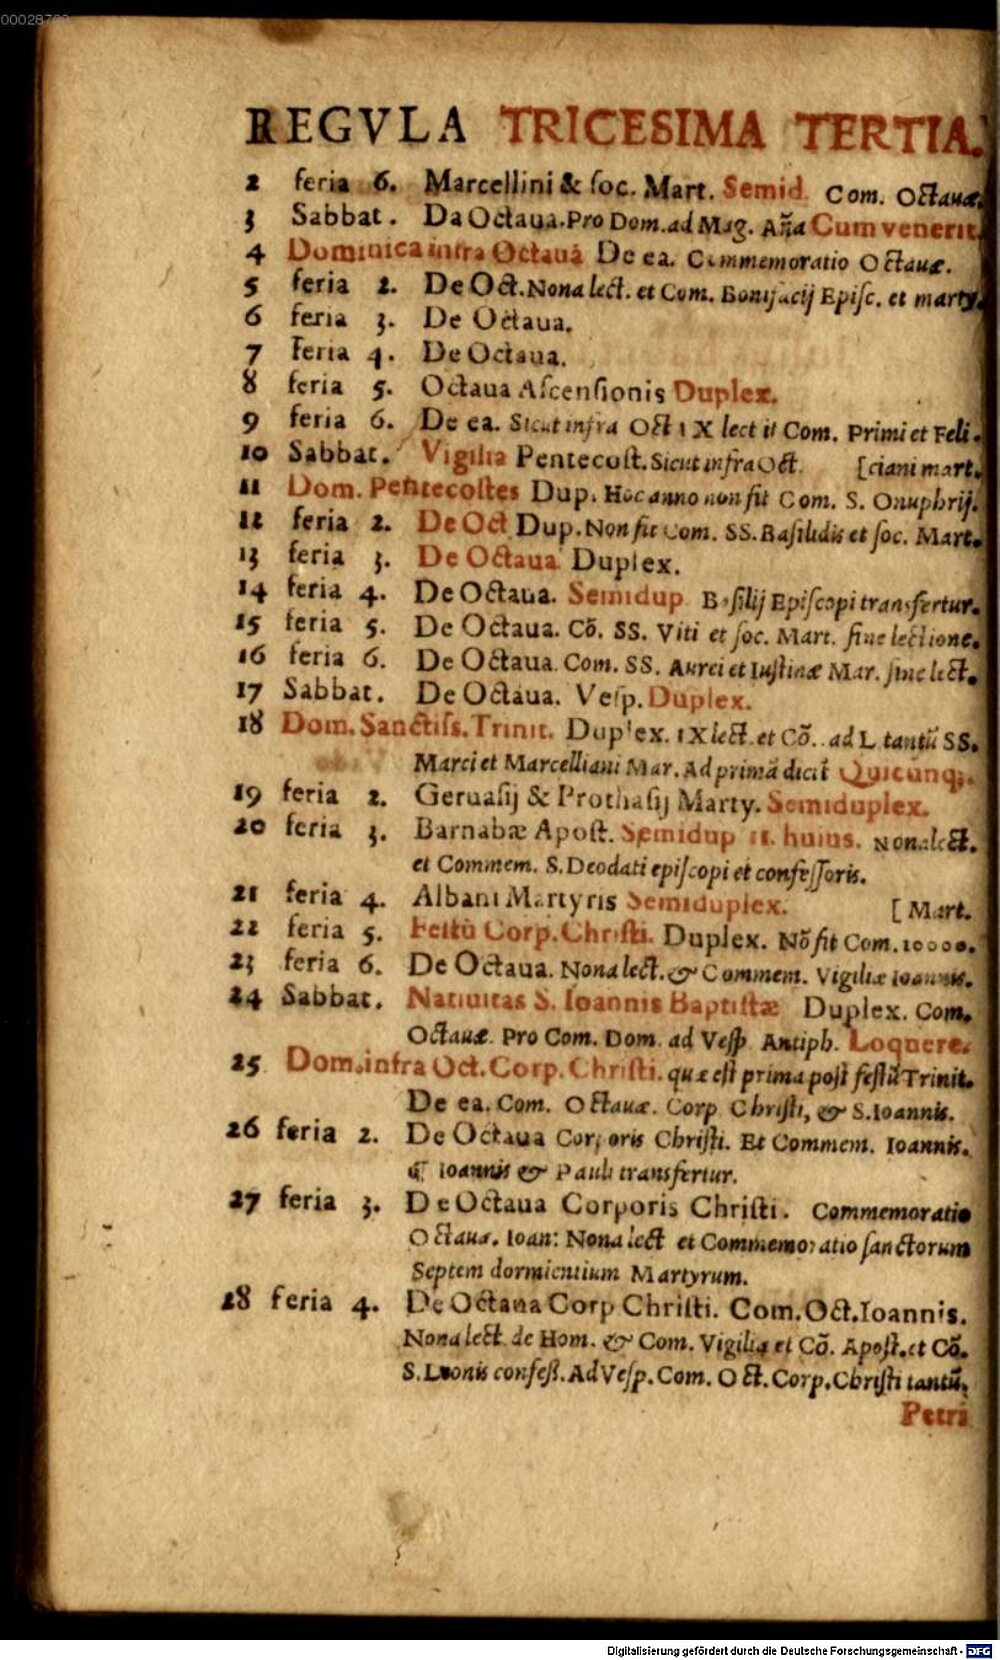 00028702
REGVLA TRICESIMA TERTIA.
2 feria 6. Marcellini & ſoc. Mart. Semid. Com. Octauæ.
3 Sabbat. Da Octaua. Pro Dom. ad Mag. Aña Cum venerit.
4 Dominica infra Octauā De ea. Commemoratio Octauæ.
5 feria 2. De Oct. Nona lect. et Com. Bonifacij Epiſc. et marty.
6 feria 3. De Octaua.
7 Feria 4. De Octaua.
8 feria 5. Octaua Aſcenſionis Duplex.
9 feria 6. De ea. Sicut infra Oct IX lect it Com. Primi et Feli-
10 Sabbat. Vigilia Pentecoſt. Sicut infra Oct. [ciani mart.
11 Dom. Pentecoſtes Dup. Hoc anno non fit Com. S. Onuphrij.
12 feria 2. De Oct Dup. Non fit Com. SS. Baſilidis et ſoc. Mart.
13 feria 3. De Octaua Duplex.
14 feria 4. De Octaua. Semidup. Baſilij Epiſcopi transfertur.
15 feria 5. De Octaua. Cō. SS. Viti et ſoc. Mart. ſine lectione.
16 feria 6. De Octaua. Com. SS. Aurei et Iuſtinæ Mar. ſine lect.
17 Sabbat. De Octaua. Veſp. Duplex.
18 Dom. Sanctiſs. Trinit. Duplex. IX lect. et Cō. ad L tantū SS.
Marci et Marcelliani Mar. Ad primā dicit Quicunq;.
19 feria 2. Geruaſij & Prothaſij Marty. Semiduplex.
20 feria 3. Barnabæ Apoſt. Semidup 11. huius. Nona lect.
et Commem. S. Deodati epiſcopi et confeſſoris.
21 feria 4. Albani Martyris Semiduplex. [Mart.
22 feria 5. Feſtū Corp. Chriſti. Duplex. Nō fit Com. 10000.
23 feria 6. De Octaua. Nona lect. & Commem. Vigiliæ Ioannis.
24 Sabbat. Natiuitas S. Ioannis Baptiſtæ Duplex. Com.
Octauæ. Pro Com. Dom. ad Veſp. Antiph. Loquere.
25 Dom. infra Oct. Corp. Chriſti. quæ eſt prima poſt feſtū Trinit.
De ea. Com. Octauæ. Corp Chriſti, & S. Ioannis.
26 feria 2. De Octaua Corporis Chriſti. Et Commem. Ioannis.
¶ Ioannis & Pauli transfertur.
27 feria 3. De Octaua Corporis Chriſti. Commemoratio
Octaua. Ioan: Nona lect et Commemoratio ſanctorum
Septem dormientium Martyrum.
28 feria 4. De Octaua Corp Chriſti. Com. Oct. Ioannis.
Nona lect de Hom. & Com. Vigiliæ et Cō. Apoſt. et Cō.
S. Leonis confeſſ. Ad Veſp. Com. Oct. Corp. Chriſti tantū.
Petri
Digitalisierung gefördert durch die Deutsche Forschungsgemeinschaft - DFG